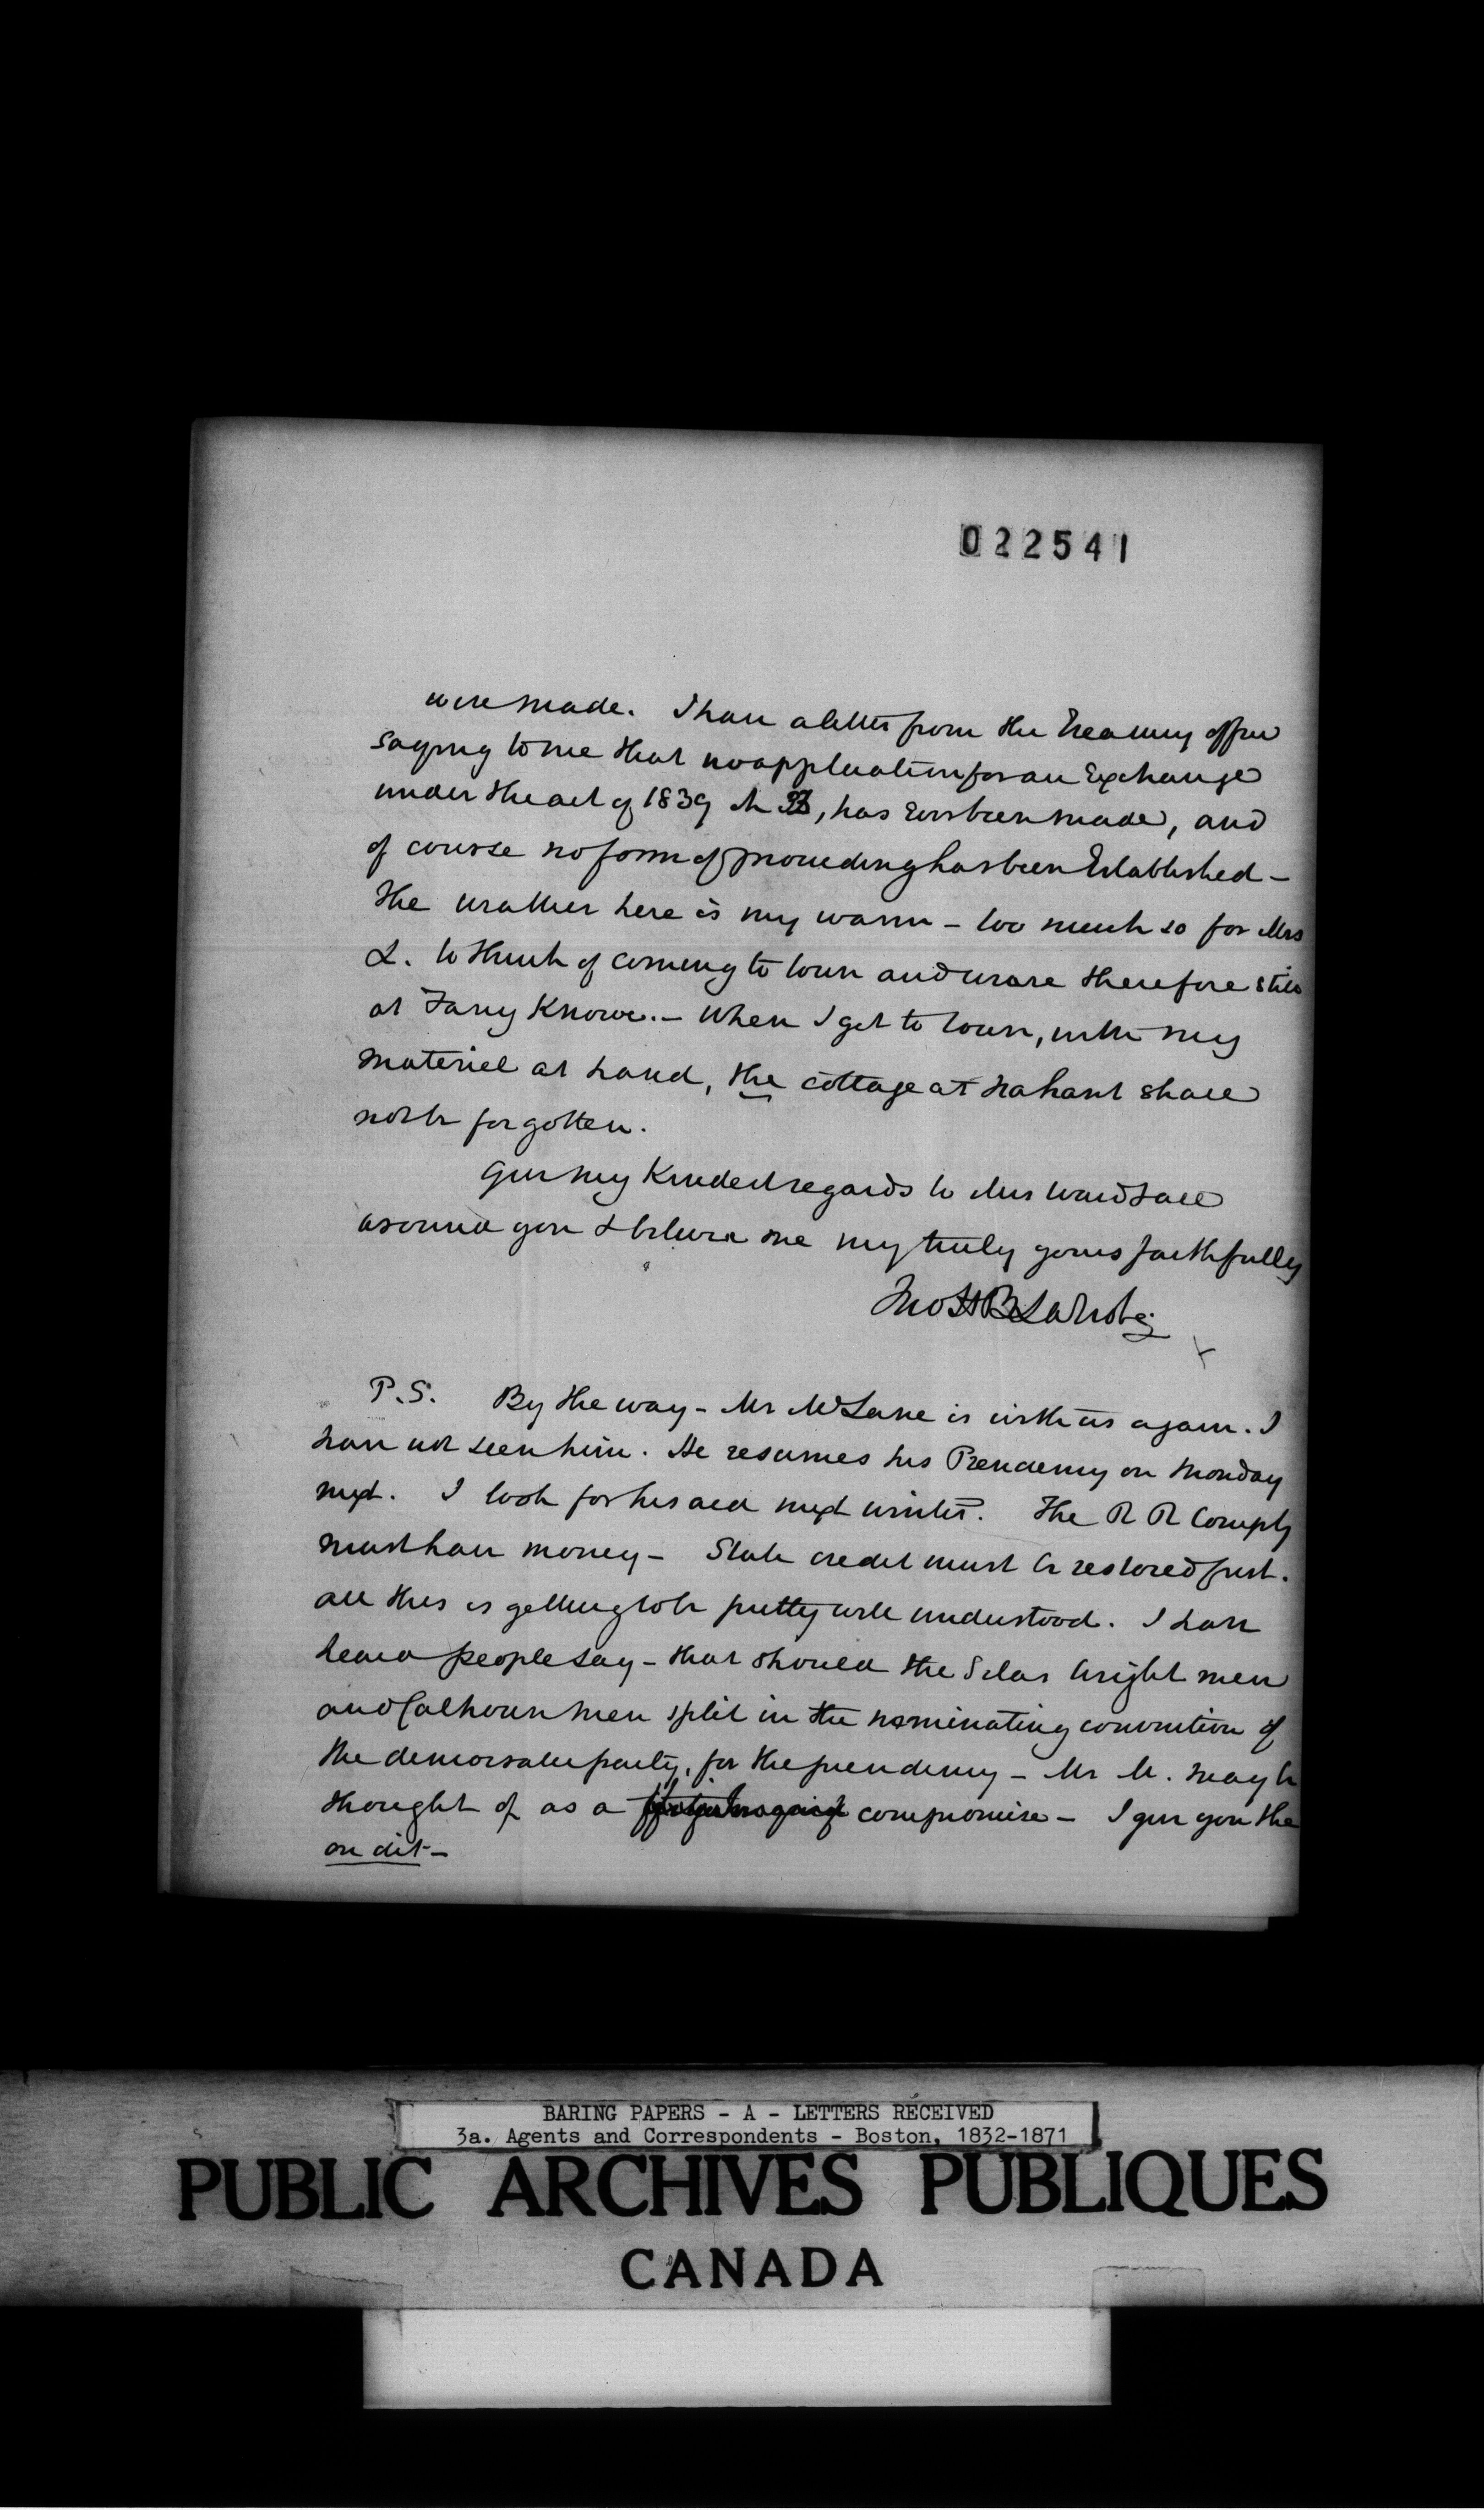 022541
were made. I have a letter from the Treasury office
saying to me that no application for an Exchange
under the act of 1839 ch, has ever been made, and
of course no form of proceeding has been Established -
The weather here is very warm - too much so for Mrs
L. to think of coming to town and we are therefore still
at Fairy Knowe. - When I get to town, with my
materiel at hand, the cottage at Nahant shall
not be forgotten.
Give my Kindest regards to Mrs Ward & all
around you & believe me very truly yours faithfully
Jno H B Latrobe
P.S. By the way - Mr McLane is with us again. I
have not seen him. He resumes his Presidency on Monday
next. I look for his aid next winter. The R R Compy
must have money - State credit must be restored first.
all this is getting to be pretty well understood. I have
heard people say - that should the Silas Wright men
and Calhoun men split in the nominating convention of
the democratic party, for the presidency - Mr M. may be
thought of as a compromise - I give you the
on dit -
BARING PAPERS - A - LETTERS RECEIVED
3a. Agents and Correspondents - Boston, 1832-1871
PUBLIC ARCHIVES PUBLIQUES
CANADA